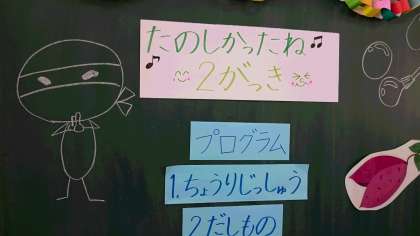 たのしかったね♫
♪ 2がっき
プログラム
1.ちょうりじっしゅう
2.だしもの